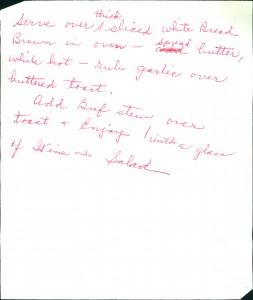 thick
Serve over 1 sliced white Bread
Brown in oven - spread butter,
while hot - rub garlic over
buttered toast.
Add Beef stew over
toast & Enjoy / with a glass
of Wine and Salad